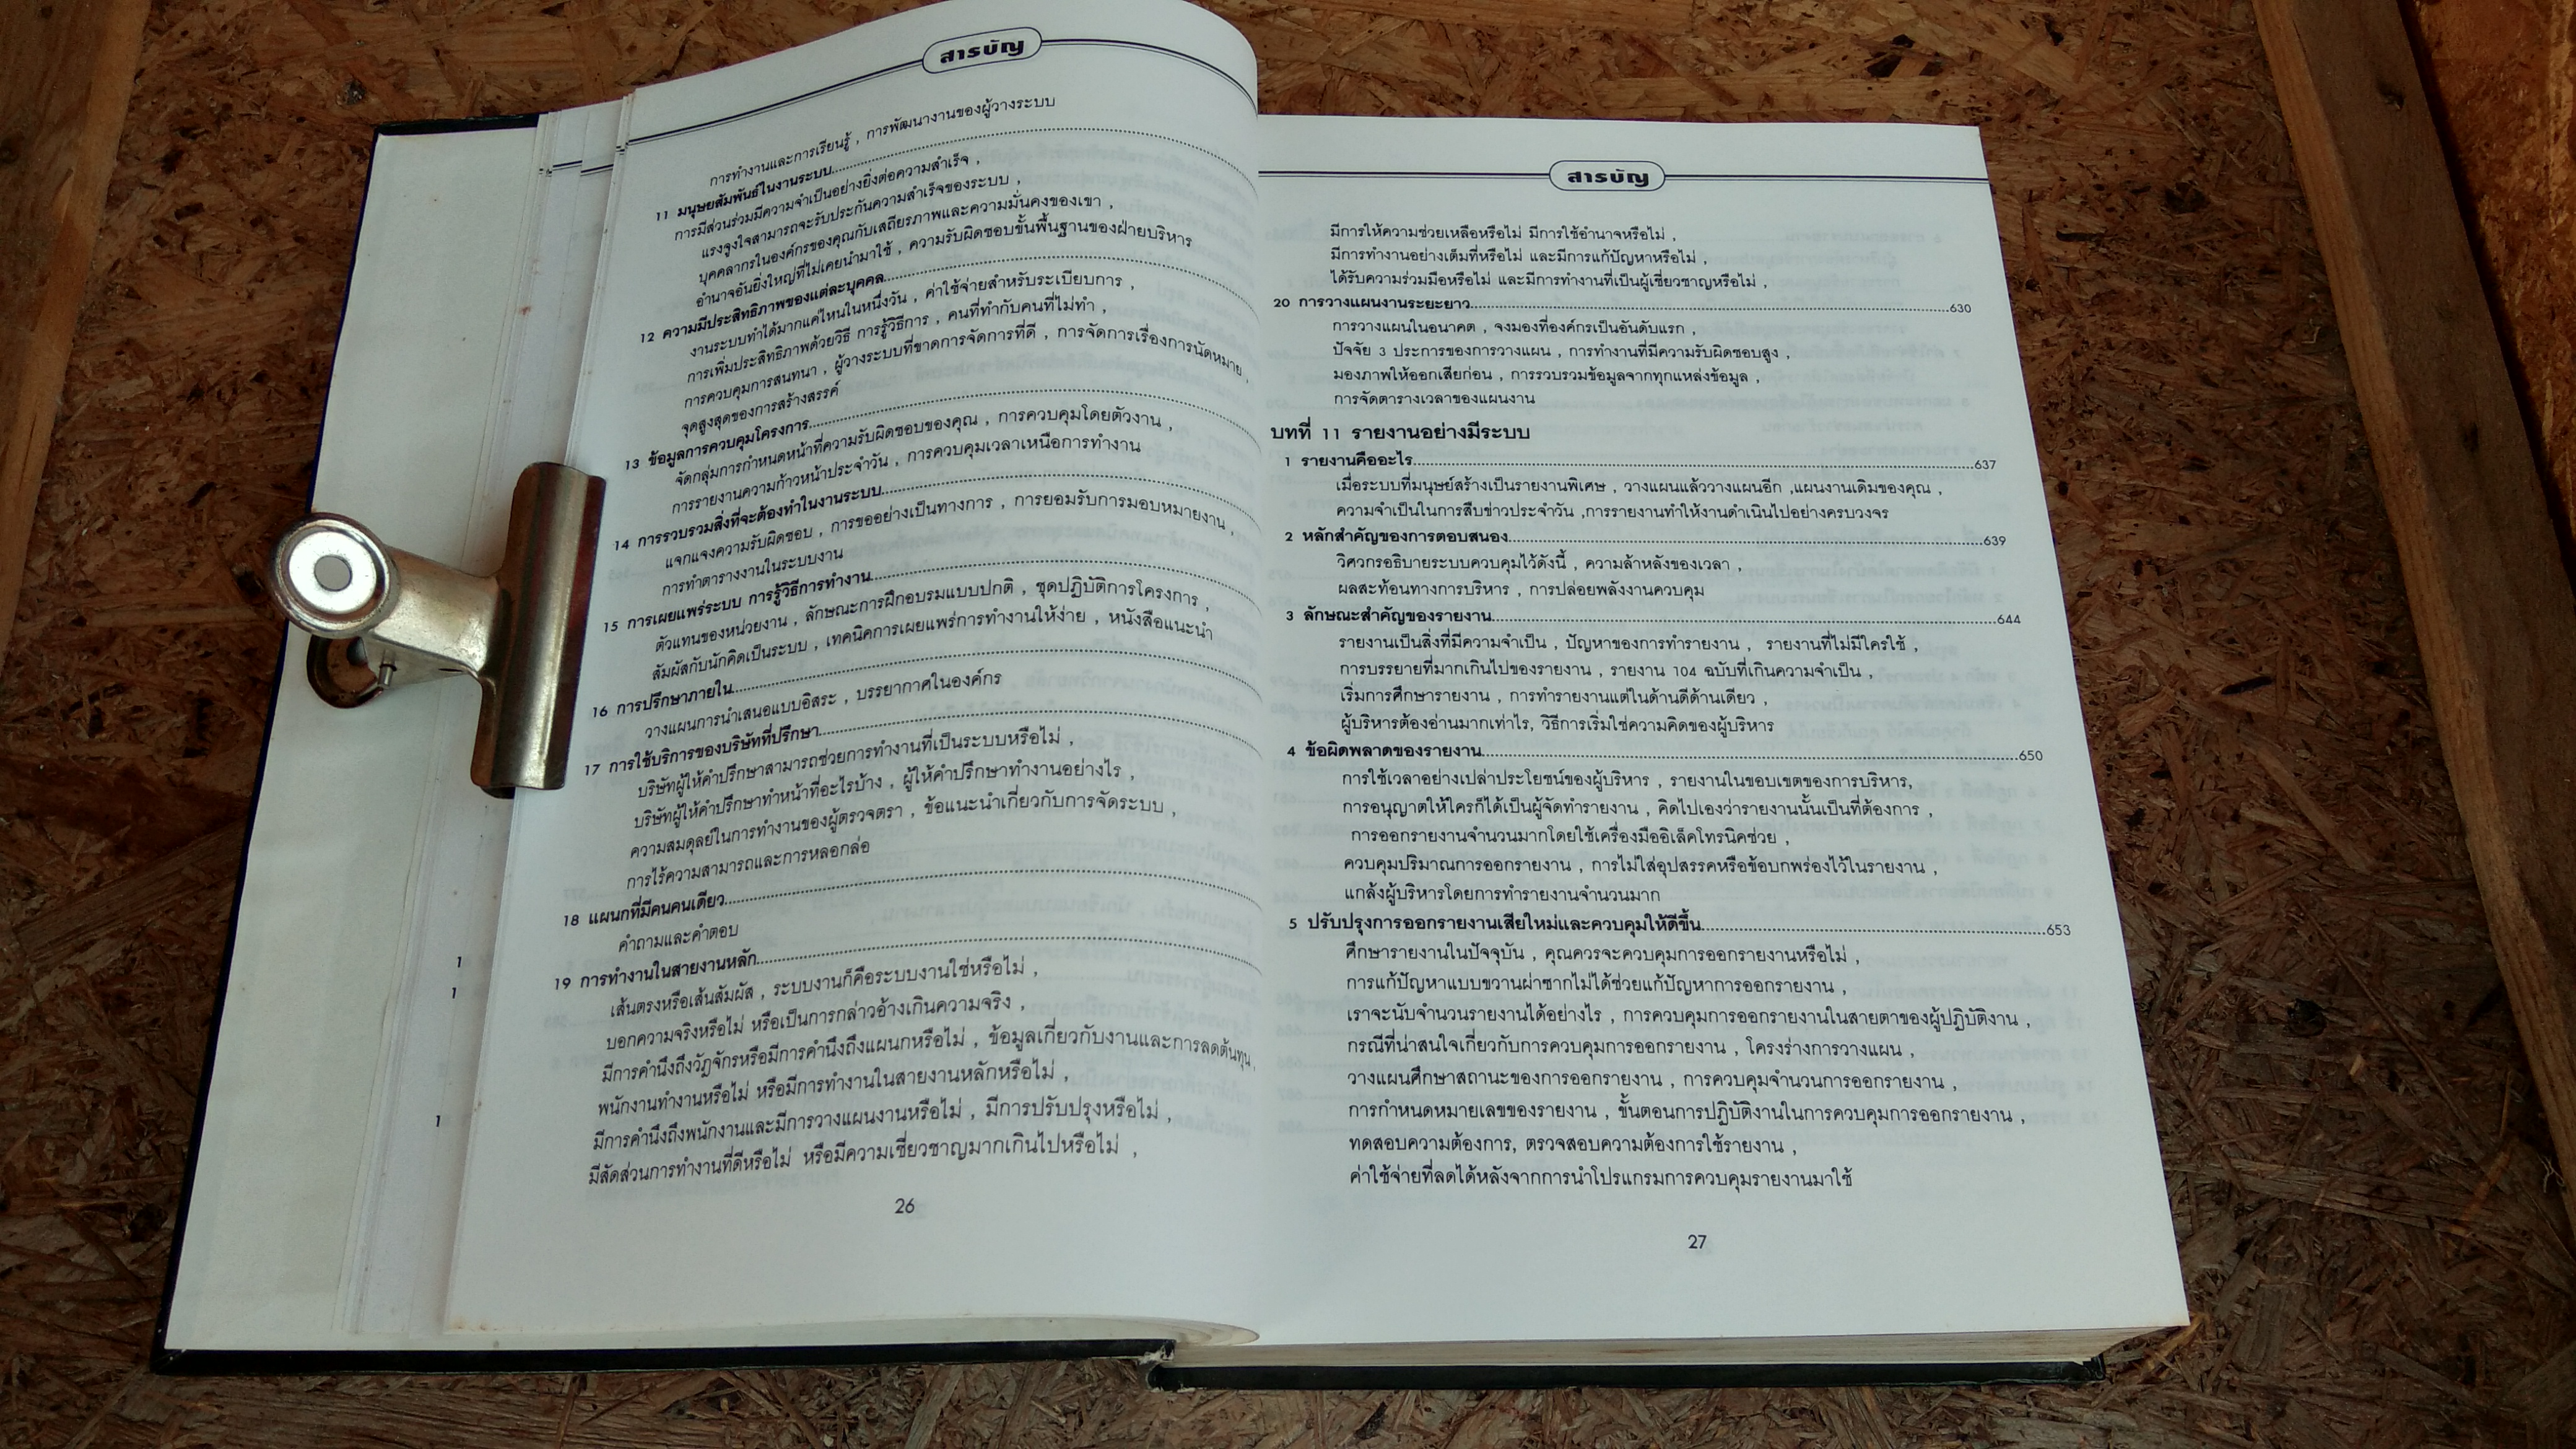 สารบัญ
การทำงานและการเรียนรู้ , การพัฒนางานของผู้วางระบบ
11 มนุษยสัมพันธ์ในงานระบบ
การมีส่วนร่วมมีความจำเป็นอย่างยิ่งต่อความสำเร็จ ,
แรงจูงใจสามารถจะรับประกันความสำเร็จของระบบ ,
บุคคลากรในองค์กรของคุณกับเสถียรภาพและความมั่นคงของเขา ,
อำนาจอันยิ่งใหญ่ที่ไม่เคยนำมาใช้ , ความรับผิดชอบขั้นพื้นฐานของฝ่ายบริหาร
12 ความมีประสิทธิภาพของแต่ละบุคคล
งานระบบทำได้มากแค่ไหนในหนึ่งวัน , ค่าใช้จ่ายสำหรับระเบียบการ ,
การเพิ่มประสิทธิภาพด้วยวิธี การรู้วิธีการ , คนที่ทำกับคนที่ไม่ทำ ,
การควบคุมการสนทนา , ผู้วางระบบที่ขาดการจัดการที่ดี , การจัดการเรื่องการนัดหมาย ,
จุดสูงสุดของการสร้างสรรค์
13 ข้อมูลการควบคุมโครงการ
จัดกลุ่มการกำหนดหน้าที่ความรับผิดชอบของคุณ , การควบคุมโดยตัวงาน ,
การรายงานความก้าวหน้าประจำวัน , การควบคุมเวลาเหนือการทำงาน
14 การรวบรวมสิ่งที่จะต้องทำในงานระบบ
แจกแจงความรับผิดชอบ , การขออย่างเป็นทางการ , การยอมรับการมอบหมายงาน ,
การทำตารางงานในระบบงาน
15 การเผยแพร่ระบบ การรู้วิธีการทำงาน
ตัวแทนของหน่วยงาน , ลักษณะการฝึกอบรมแบบปกติ , ชุดปฏิบัติการโครงการ ,
สัมผัสกับนักคิดเป็นระบบ , เทคนิคการเผยแพร่การทำงานให้ง่าย , หนังสือแนะนำ
16 การปรึกษาภายใน
วางแผนการนำเสนอแบบอิสระ , บรรยากาศในองค์กร
17 การใช้บริการของบริษัทที่ปรึกษา
บริษัทผู้ให้คำปรึกษาสามารถช่วยการทำงานที่เป็นระบบหรือไม่ ,
บริษัทผู้ให้คำปรึกษาทำหน้าที่อะไรบ้าง , ผู้ให้คำปรึกษาทำงานอย่างไร ,
ความสมดุลย์ในการทำงานของผู้ตรวจตรา , ข้อแนะนำเกี่ยวกับการจัดระบบ ,
การไร้ความสามารถและการหลอกล่อ
18 แผนกที่มีคนคนเดียว
คำถามและคำตอบ
19 การทำงานในสายงานหลัก
เส้นตรงหรือเส้นสัมผัส , ระบบงานก็คือระบบงานใช่หรือไม่ ,
บอกความจริงหรือไม่ หรือเป็นการกล่าวอ้างเกินความจริง ,
มีการคำนึงถึงวัฏจักรหรือมีการคำนึงถึงแผนกหรือไม่ , ข้อมูลเกี่ยวกับงานและการลดต้นทุน ,
พนักงานทำงานหรือไม่ หรือมีการทำงานในสายงานหลักหรือไม่ ,
มีการคำนึงถึงพนักงานและมีการวางแผนงานหรือไม่ , มีการปรับปรุงหรือไม่ ,
มีสัดส่วนการทำงานที่ดีหรือไม่ หรือมีความเชี่ยวชาญมากเกินไปหรือไม่ ,
26
สารบัญ
มีการให้ความช่วยเหลือหรือไม่ มีการใช้อำนาจหรือไม่ ,
มีการทำงานอย่างเต็มที่หรือไม่ และมีการแก้ปัญหาหรือไม่ ,
ได้รับความร่วมมือหรือไม่ และมีการทำงานที่เป็นผู้เชี่ยวชาญหรือไม่ ,
20 การวางแผนงานระยะยาว 630
การวางแผนในอนาคต , จงมองที่องค์กรเป็นอันดับแรก ,
ปัจจัย 3 ประการของการวางแผน , การทำงานที่มีความรับผิดชอบสูง ,
มองภาพให้ออกเสียก่อน , การรวบรวมข้อมูลจากทุกแหล่งข้อมูล ,
การจัดตารางเวลาของแผนงาน
บทที่ 11 รายงานอย่างมีระบบ
1 รายงานคืออะไร 637
เมื่อระบบที่มนุษย์สร้างเป็นรายงานพิเศษ , วางแผนแล้ววางแผนอีก ,แผนงานเดิมของคุณ ,
ความจำเป็นในการสืบข่าวประจำวัน ,การรายงานทำให้งานดำเนินไปอย่างครบวงจร
2 หลักสำคัญของการตอบสนอง 639
วิศวกรอธิบายระบบควบคุมไว้ดังนี้ , ความล้าหลังของเวลา ,
ผลสะท้อนทางการบริหาร , การปล่อยพลังงานควบคุม
3 ลักษณะสำคัญของรายงาน 644
รายงานเป็นสิ่งที่มีความจำเป็น , ปัญหาของการทำรายงาน , รายงานที่ไม่มีใครใช้ ,
การบรรยายที่มากเกินไปของรายงาน , รายงาน 104 ฉบับที่เกินความจำเป็น ,
เริ่มการศึกษารายงาน , การทำรายงานแต่ในด้านดีด้านเดียว ,
ผู้บริหารต้องอ่านมากเท่าไร, วิธีการเริ่มใช่ความคิดของผู้บริหาร
4 ข้อผิดพลาดของรายงาน 650
การใช้เวลาอย่างเปล่าประโยชน์ของผู้บริหาร , รายงานในขอบเขตของการบริหาร,
การอนุญาตให้ใครก็ได้เป็นผู้จัดทำรายงาน , คิดไปเองว่ารายงานนั้นเป็นที่ต้องการ ,
การออกรายงานจำนวนมากโดยใช้เครื่องมืออิเล็คโทรนิคช่วย ,
ควบคุมปริมาณการออกรายงาน , การไม่ใส่อุปสรรคหรือข้อบกพร่องไว้ในรายงาน ,
แกล้งผู้บริหารโดยการทำรายงานจำนวนมาก
5 ปรับปรุงการออกรายงานเสียใหม่และควบคุมให้ดีขึ้น 653
ศึกษารายงานในปัจจุบัน , คุณควรจะควบคุมการออกรายงานหรือไม่ ,
การแก้ปัญหาแบบขวานผ่าซากไม่ได้ช่วยแก้ปัญหาการออกรายงาน ,
เราจะนับจำนวนรายงานได้อย่างไร , การควบคุมการออกรายงานในสายตาของผู้ปฏิบัติงาน ,
กรณีที่น่าสนใจเกี่ยวกับการควบคุมการออกรายงาน , โครงร่างการวางแผน ,
วางแผนศึกษาสถานะของการออกรายงาน , การควบคุมจำนวนการออกรายงาน ,
การกำหนดหมายเลขของรายงาน , ขั้นตอนการปฏิบัติงานในการควบคุมการออกรายงาน ,
ทดสอบความต้องการ, ตรวจสอบความต้องการใช้รายงาน ,
ค่าใช้จ่ายที่ลดได้หลังจากการนำโปรแกรมการควบคุมรายงานมาใช้
27